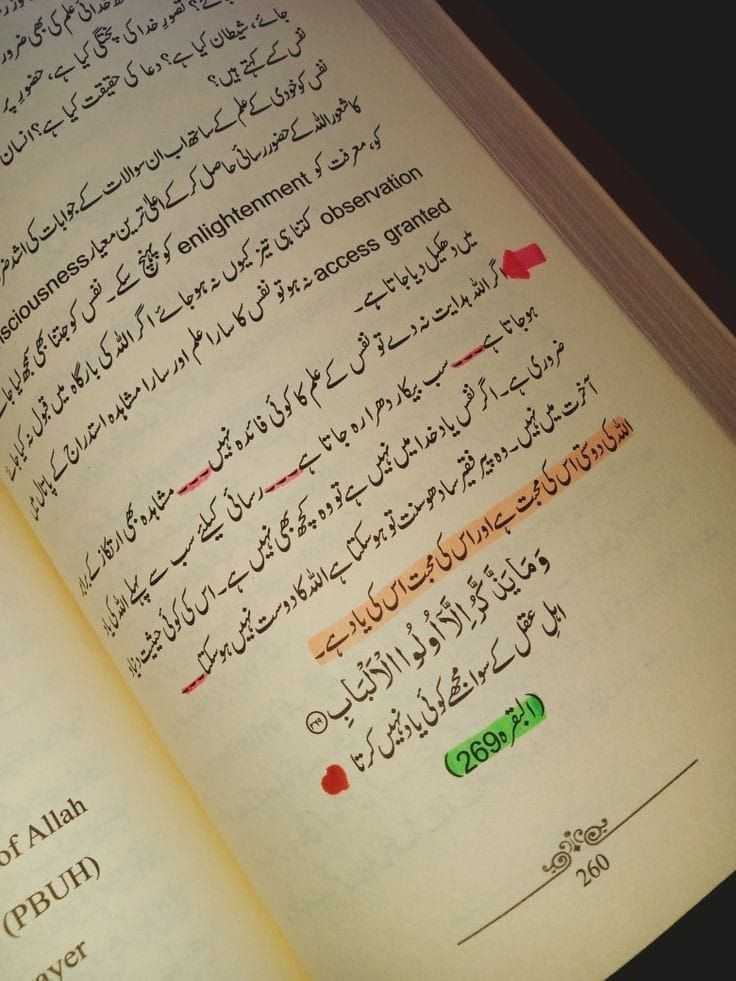 خدائی علم کی بھی ضرور
؟ تصورِ خدا کی پختگی کیا ہے، حضور پر
جائے، شیطان کیا ہے؟ دعا کی حقیقت کیا ہے؟ انسان
نفس کسے کہتے ہیں؟
نفس کو خودی کے علم کے ساتھ اب ان سوالات کے جوابات کی اشد ضر
کا شعور اللہ کے حضور رسائی حاصل کر کے اعلیٰ ترین معیار nsciousness
کو، معرفت کو enlightenment کو پہنچ سکے۔ نفس کو جتنا بھی سمجھ لیا جا
observation کتنا ہی تیز کیوں نہ ہو جائے اگر اللہ کی بارگاہ میں قبول نہ کیا جائے
access granted نہ ہو تو نفس کا سارا علم اور سارا مشاہدہ استدراج کے پاتال میں
میں دھکیل دیا جاتا ہے۔
اگر اللہ ہدایت نہ دے تو نفس کے علم کا کوئی فائدہ نہیں۔۔۔ مشاہدہ بھی ارتکاز کے برابر
ہو جاتا ہے۔۔۔ سب بیکار دھرا رہ جاتا ہے۔۔۔ رسائی کیلئے سب سے پہلے اللہ کی یاد
ضروری ہے۔ اگر نفس یادِ خدا میں نہیں ہے تو وہ کچھ بھی نہیں ہے۔ اس کی کوئی حیثیت دنیا و
آخرت میں نہیں۔ وہ پیر فقیر سادھو سنت تو ہو سکتا ہے اللہ کا دوست نہیں ہو سکتا۔۔۔
اللہ کی دوستی اس کی محبت ہے اور اس کی محبت اس کی یاد ہے۔
وَمَا يَذَّكَّرُ اِلَّآ اُولُوا الْاَلْبَابِ ﴿۲۶۹﴾
اہلِ عقل کے سوا مجھے کوئی یاد نہیں کرتا
(البقرہ 269)
260
of Allah
(PBUH)
ayer